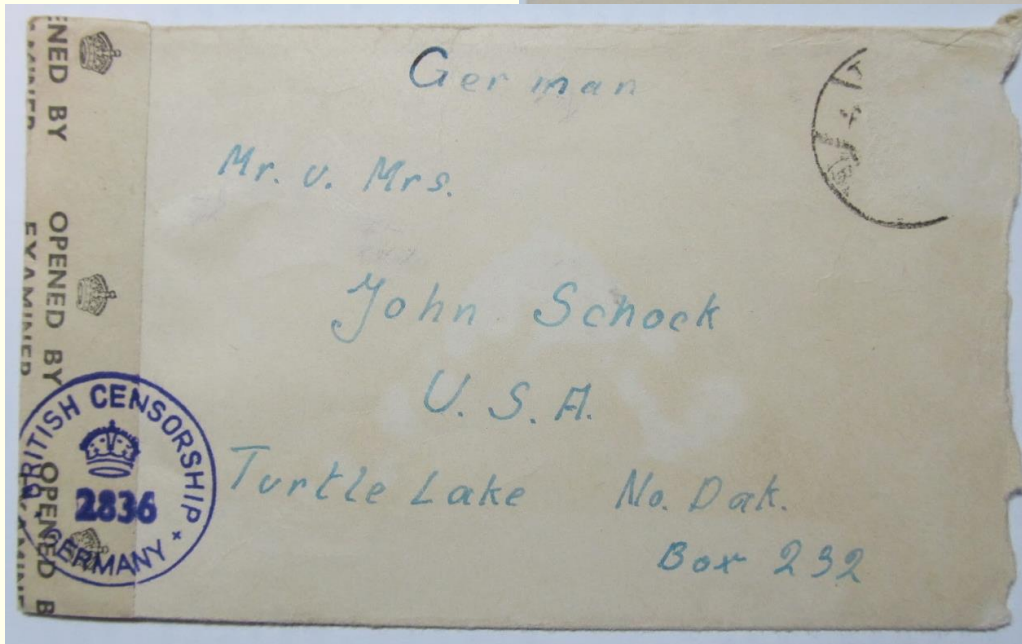 German
Mr. u. Mrs.
John Schock
U. S. A.
Turtle Lake No. Dak.
Box 232
OPENED BY
EXAMINER
OPENED BY
EXAMINER
OPENED B
BRITISH CENSORSHIP
2836
GERMANY